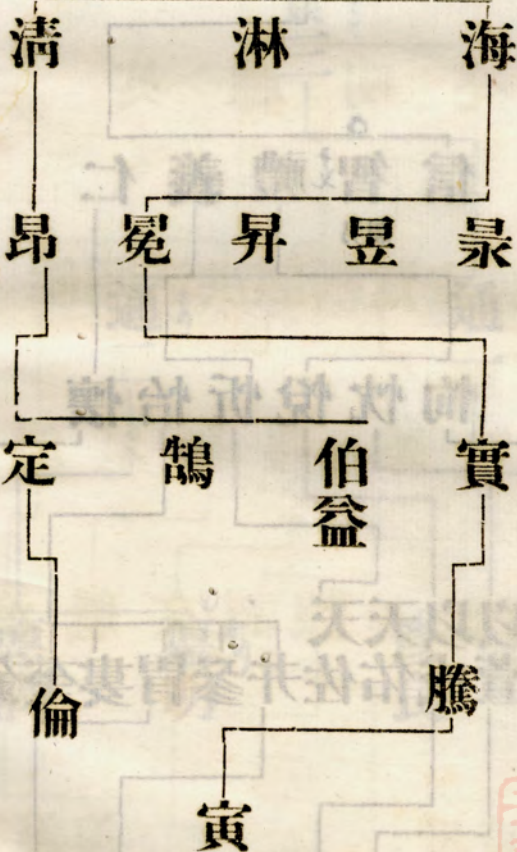 海 淋 清
昱 昇 冕 昂
實 伯益 鵠 定
騰 倫
寅